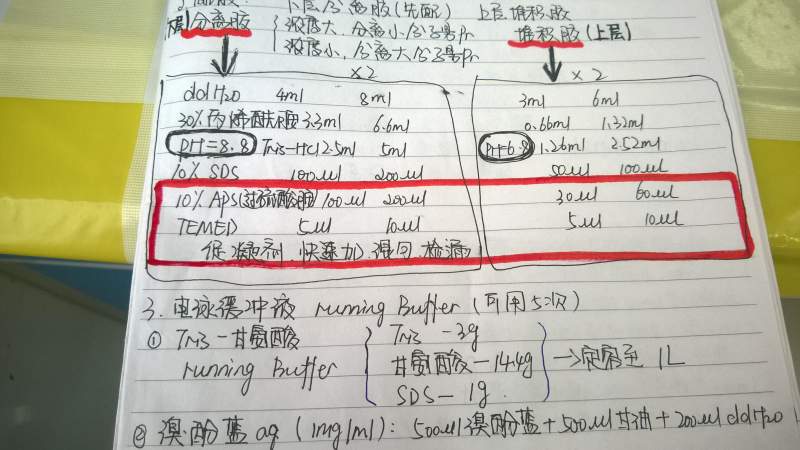 下层分离胶(先配) 上层堆积胶
分离胶 { 浓度大,分离小分子量pr 堆积胶(上层)
浓度小,分离大分子量pr
×2 ×2
ddH2O 4ml 8ml 3ml 6ml
30%丙烯酰胺 3.3ml 6.6ml 0.66ml 1.32ml
PH=8.8 Tris-HCl 2.5ml 5ml PH=6.8 1.26ml 2.52ml
10% SDS 100ul 200ul 50ul 100ul
10% APS(过硫酸胺) 100ul 200ul 30ul 60ul
TEMED 5ul 10ul 5ul 10ul
促凝剂,快速加,混匀,检漏
3. 电泳缓冲液 running Buffer (可用5次)
① Tris-甘氨酸 { Tris -3g
running Buffer 甘氨酸-14.4g } →定容至 1L
SDS- 1g.
② 溴酚蓝 aq (1mg/ml): 500ul溴酚蓝+500ul甘油+200ul ddH2O